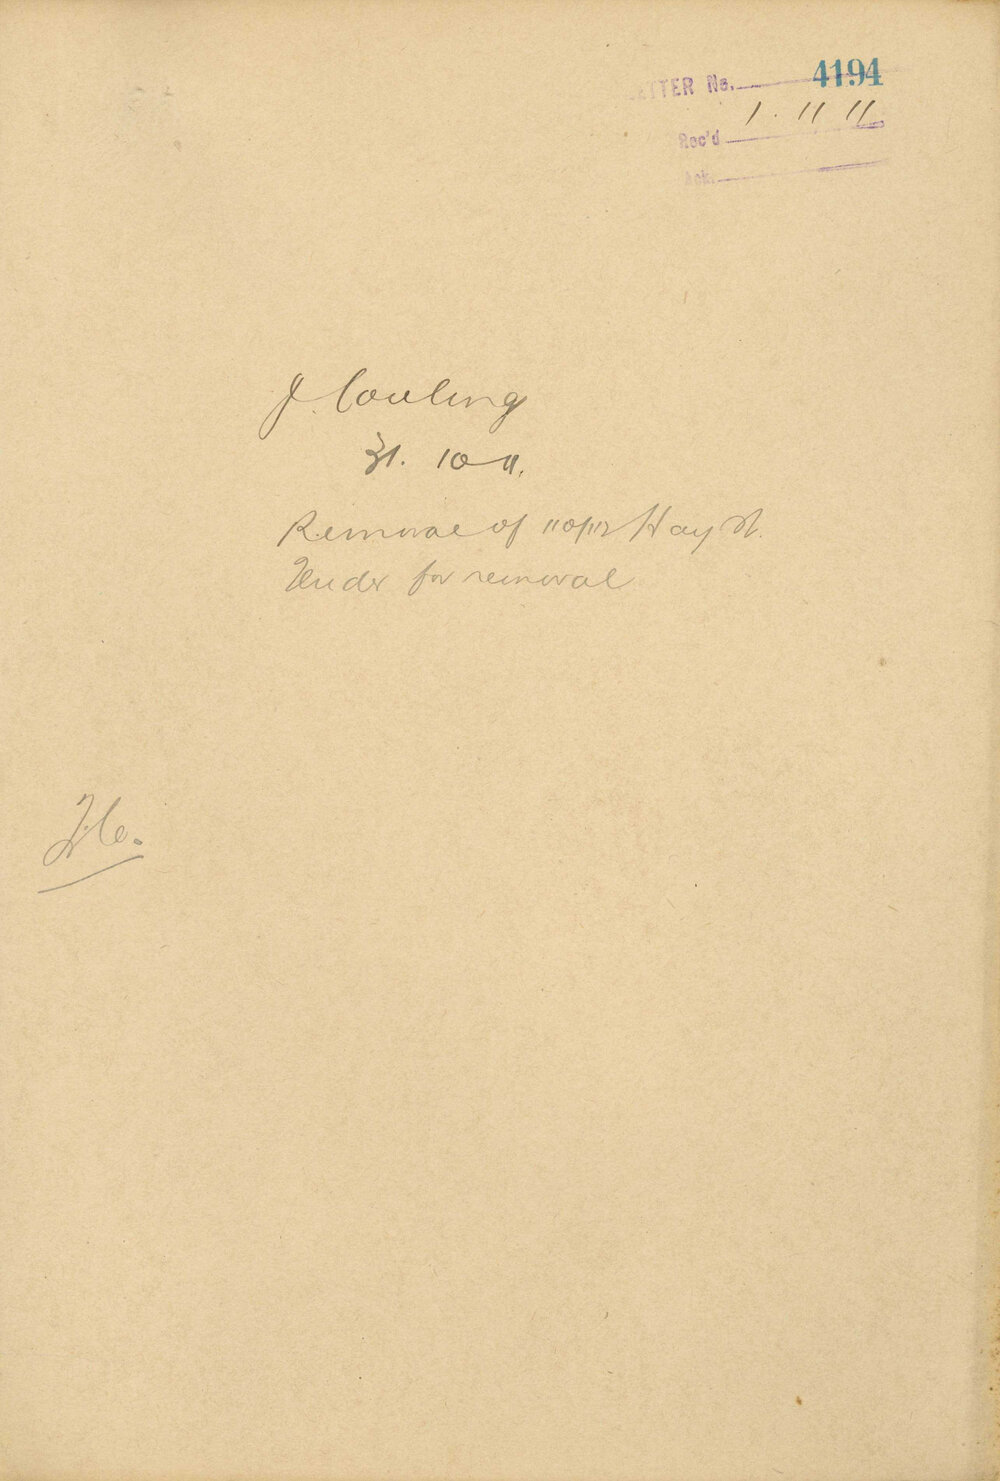 LETTER No. 4194
Rec'd 1. 11 11
Ack.
J. Couling
31. 10 11.
Removal of 110/112 Hay St.
Tender for removal